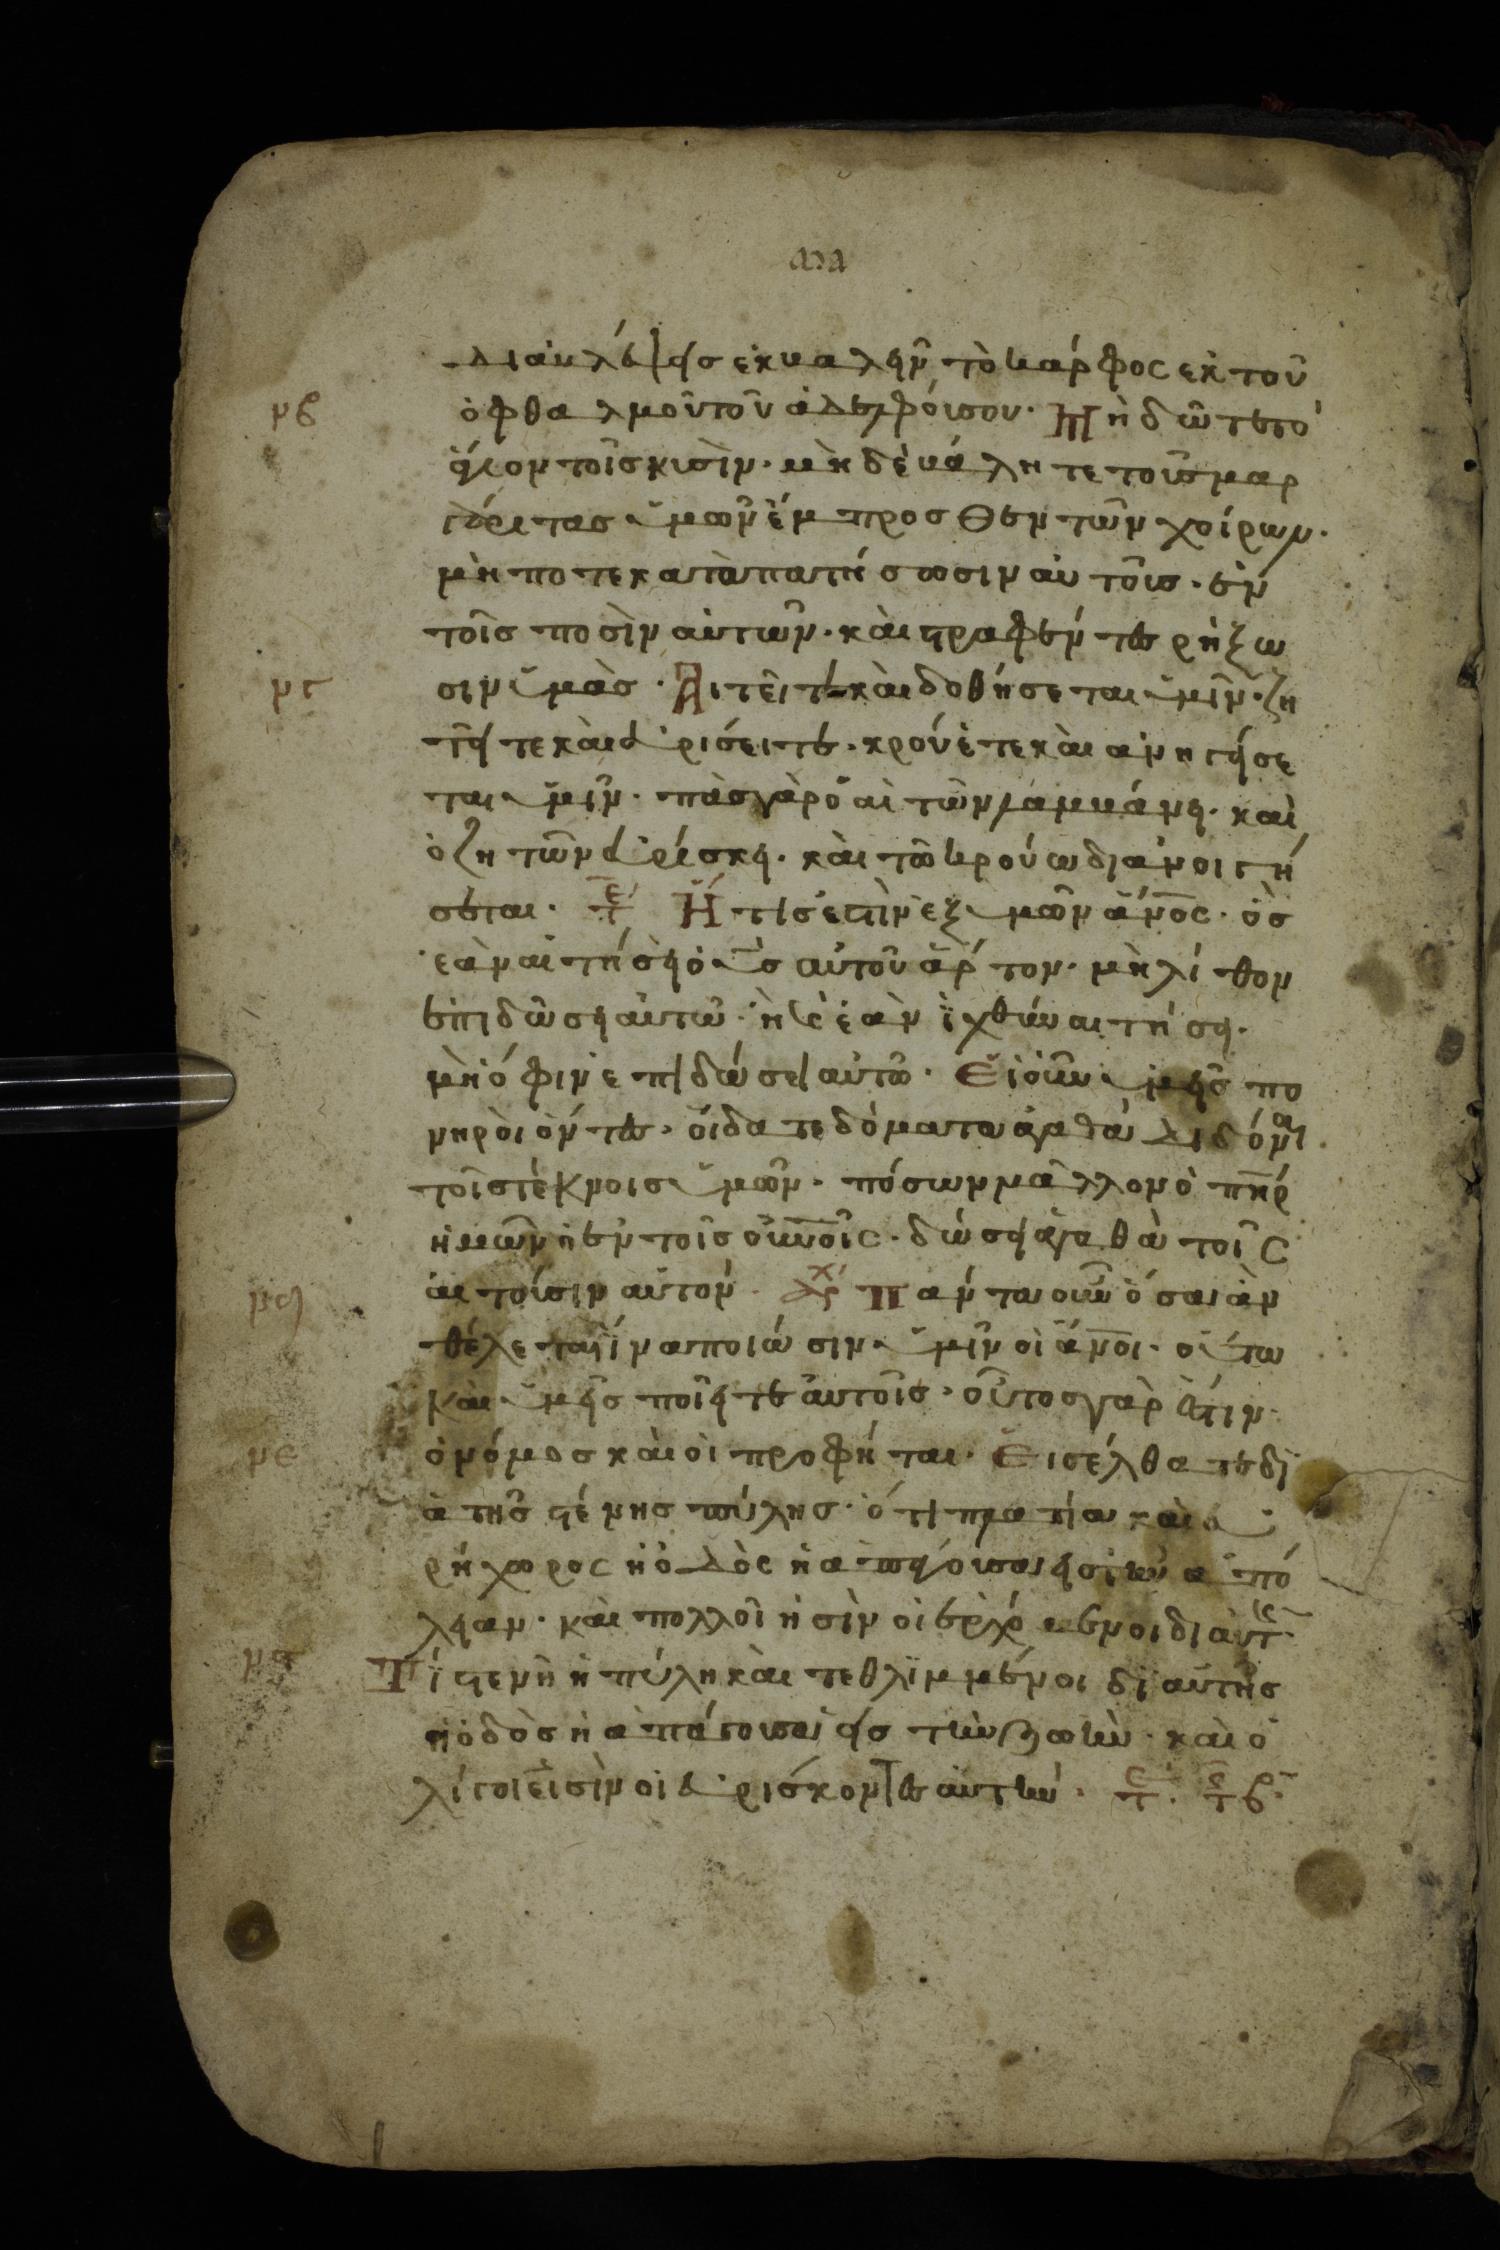 διαβλέψης ἐκβαλῆν τὸ κάρφος ἐκ τοῦ
ὀφθαλμοῦ τοῦ ἀδελφόι σου. Μὴ δῶτε τὸ
ἅγιον τοῖς κυσὶν. μὴ δὲ βάλητε τοὺς μαρ
γάριτας ὑμῶν ἔμπροσθεν τῶν χοίρων.
μὴ ποτε καταπατήσωσιν αὐτοῖς. ἐν
τοῖς ποσὶν αὐτῶν. καὶ στραφέντες ρήξω
σιν ὑμὰς. Αἰτεῖτε καὶ δοθήσεται ὑμῖν. ζη
τῆτε καὶ εὑρίσειτε. κρούετε καὶ ανηγήσε
ται ὑμῖν. πὰς γὰρ ὅ αἰτῶν λαμβάνη. καὶ
ὁ ζητῶν εὑρίσκη. καὶ τῶ κρούω διανοιγή
σεται. Ἢ τίς ἐστὶν ἐξ ὑμῶν ἄνος. ὃς
ἐὰν αἰτήση ὁ υς αὐτοῦ ἄρτον. μὴ λίθον
ἐπιδώση αὐτῶ. ἢ κ ἐὰν ἰχθύν αιτήση.
μὴ ὄφιν ἐπιδώσει αὐτῶ. Εἰ οὖν ὑμῆς πο
νηρὸι ὄντες. οἴδατε δόματα ἀγαθὰ διδόναι
τοῖς τέκνοις ὑμῶν. πόσων μᾶλλον ὁ πηρ
ἡμῶν ἡ ἐν τοῖς οὐνοῖς. δώση ἀγαθὰ τοῖς
αἰτοῖσιν αὐτόν. Πάντα οὖν ὅσα ἀν
θέλεται ἵνα ποιώσιν ὑμῖν οἱ ἄνοι. οὕτω
καὶ ὑμῆς ποῖητε αὐτοῖς. οὗτος γὰρ ἐστιν
ὁ νόμος καὶ οἱ προφήται. Εἰσέλθατε δι
ὰ τῆς στένης πύλης. ὅτι πλατία καὶ εὐ
ρήχορος ἡ ὁδὸς ἡ ἀπάγουσα ης τὴν ἀπό
ληαν. καὶ πολλοῖ ἡσὶν οἱ ἐρχόμενοι δι αὐτ
Τί στενὴ ἡ πύλη καὶ τεθλιμμένοι δι αὐτῆς
ἡ ὁδὸς ἡ ἀπάγουσα ης τὴν ζωὴν. καὶ ὀ
λίγοι εἰσὶν οἱ εὑρίσκοντες αὐτὴν.